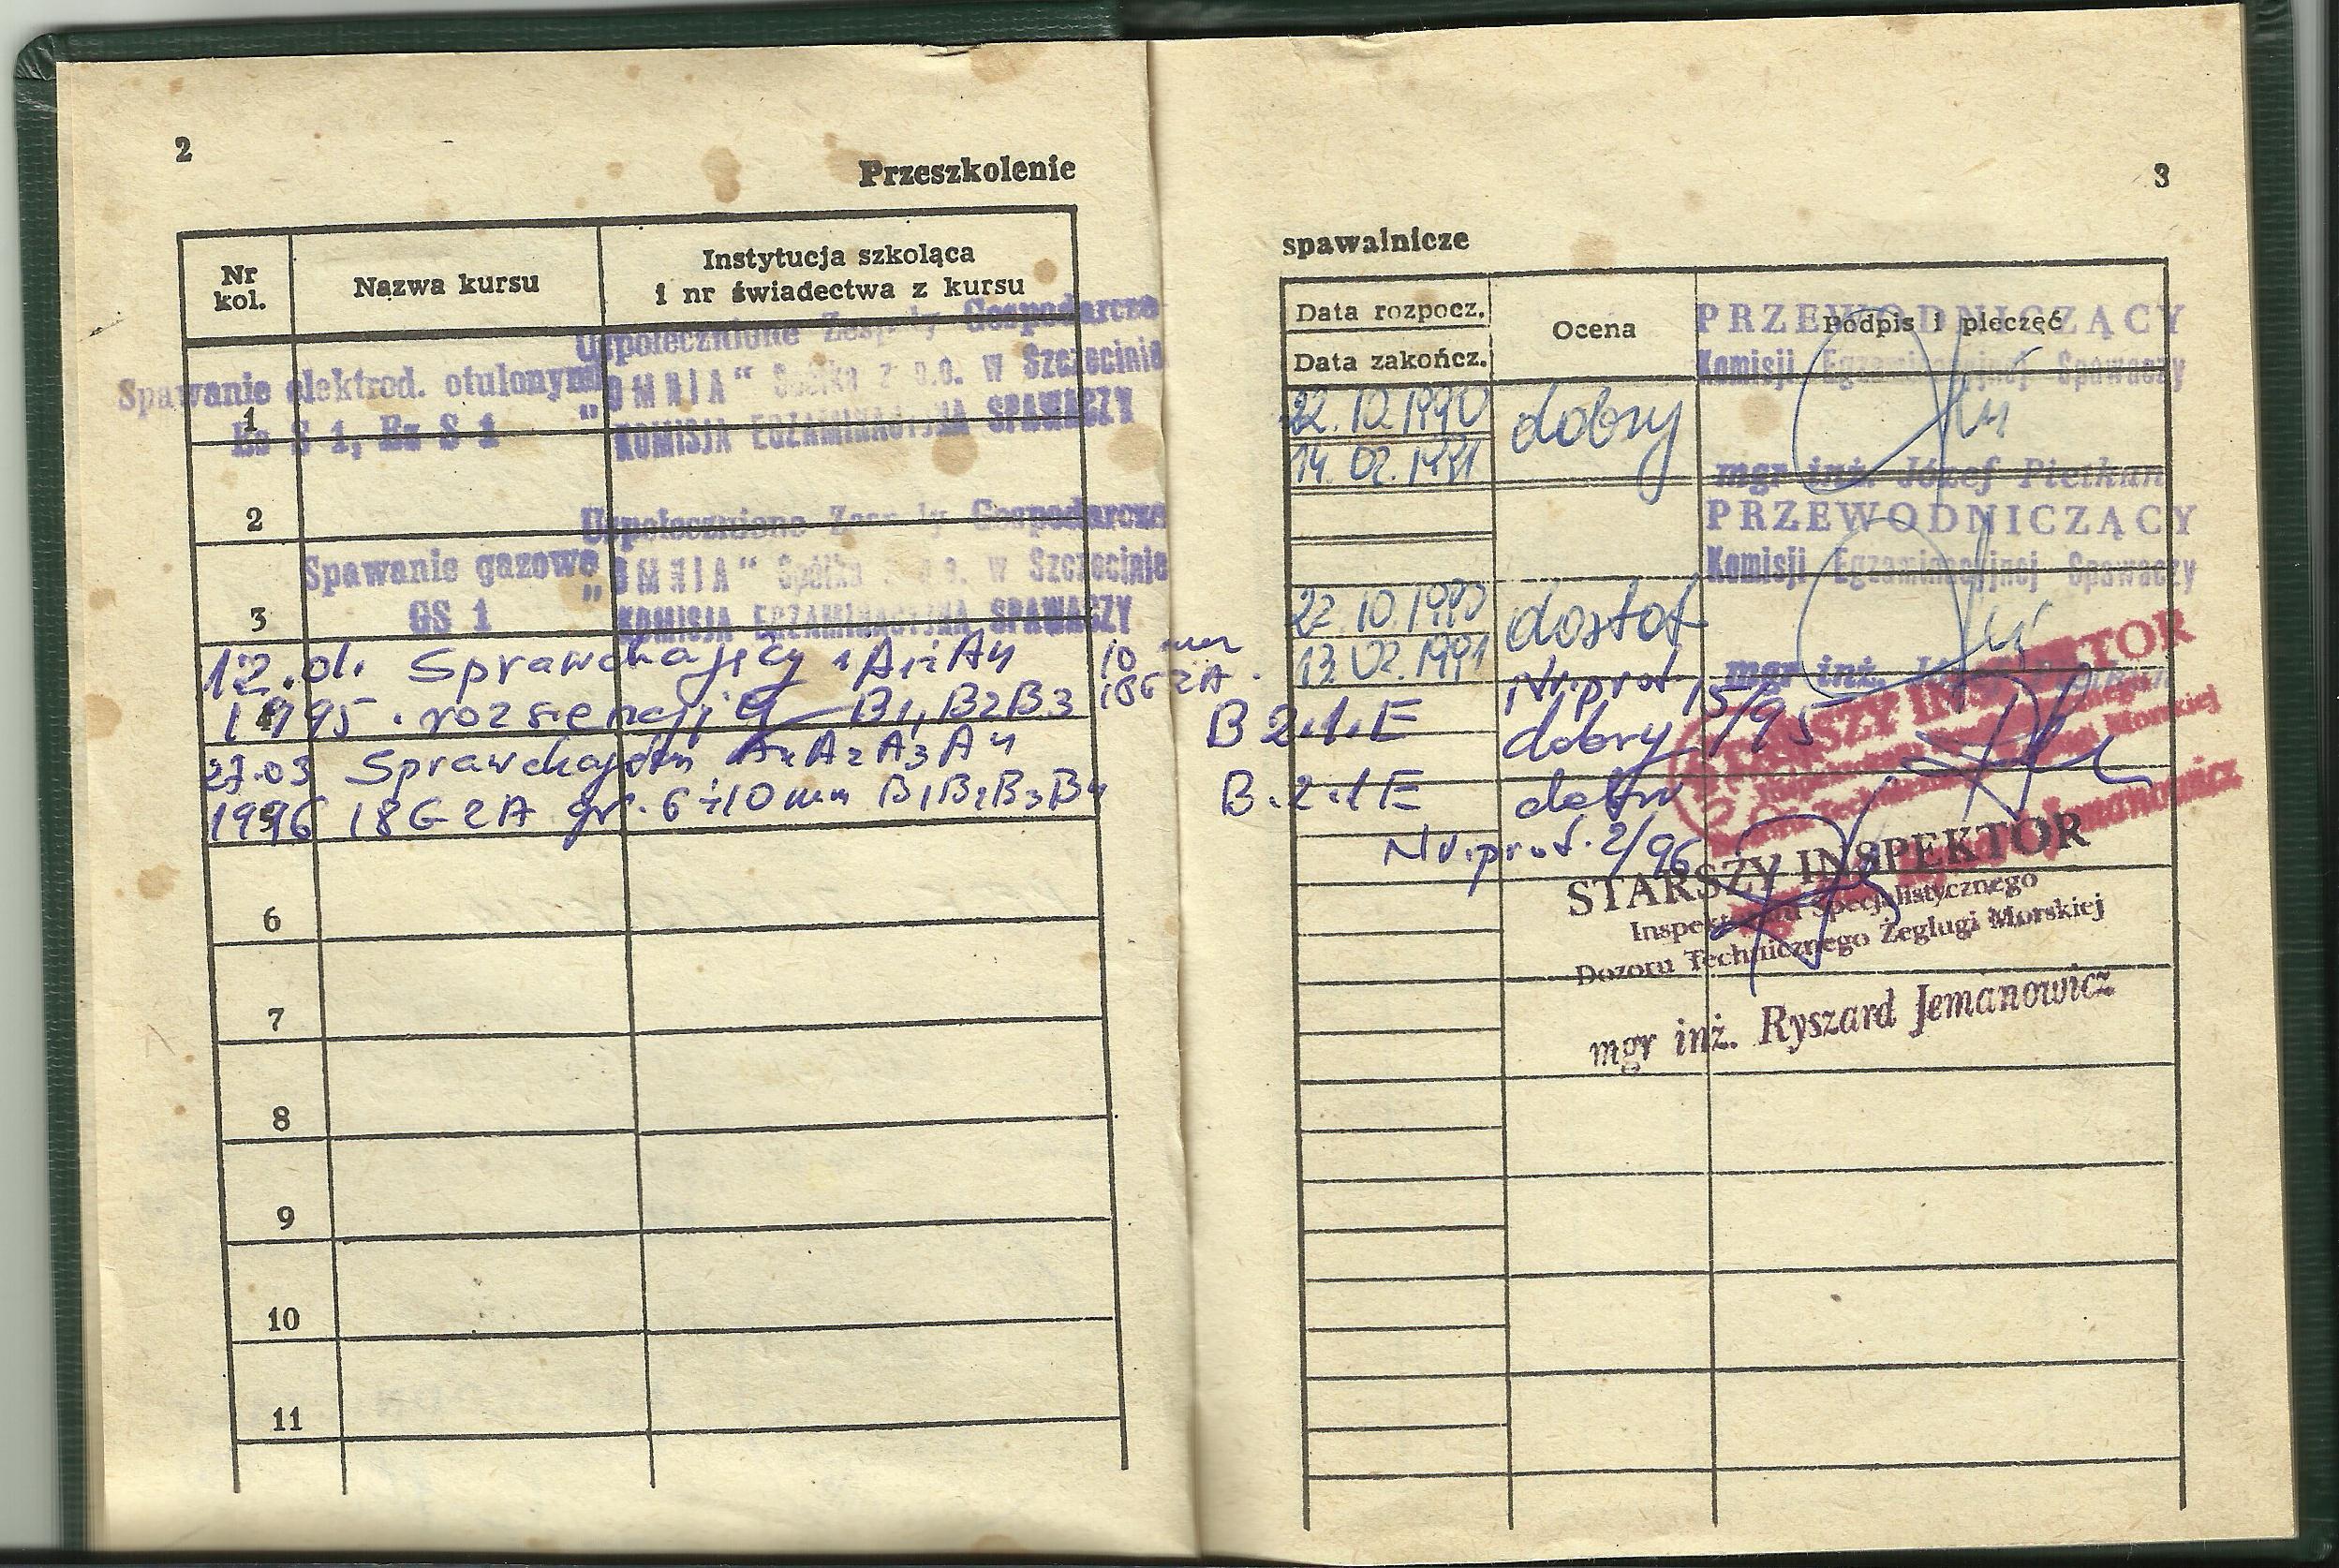 2
Przeszkolenie
Nr kol.
Nazwa kursu
Instytucja szkoląca
i nr świadectwa z kursu
Spawanie elektrod. otulonymi
Es S 1, Ez S 1
1
Uspołecznione Zespoły Gospodarcze
"OMNIA" Spółka z o.o. w Szczecinie
KOMISJA EGZAMINACYJNA SPAWACZY
2
Spawanie gazowe
GS 1
3
Uspołecznione Zespoły Gospodarcze
"OMNIA" Spółka z o.o. w Szczecinie
KOMISJA EGZAMINACYJNA SPAWACZY
12.01. Sprawdzający A1÷A4 10 mm
1995. rozszerzający B1, B2 B3 18G2A.
27.03 Sprawdzający A1 A2 A3 A4
1996 18G2A gr. 6÷10 mm B1 B2 B3 B4
6
7
8
9
10
11
3
spawalnicze
Data rozpocz.
Data zakończ.
Ocena
Podpis i pieczęć
PRZEWODNICZĄCY
Komisji Egzaminacyjnej Spawaczy
22.10.1990
14.02.1991
dobry
mgr inż. Józef Pietkun
PRZEWODNICZĄCY
Komisji Egzaminacyjnej Spawaczy
22.10.1990
13.02.1991
dostat
mgr inż.
Nr.prot 15/95
B 2.1.E dobry
STARSZY INSPEKTOR
B.2.1E
Nr.prot. 2/96
STARSZY INSPEKTOR
Inspektoratu Specjalistycznego
Dozoru Technicznego Żeglugi Morskiej
mgr inż. Ryszard Jemanowicz